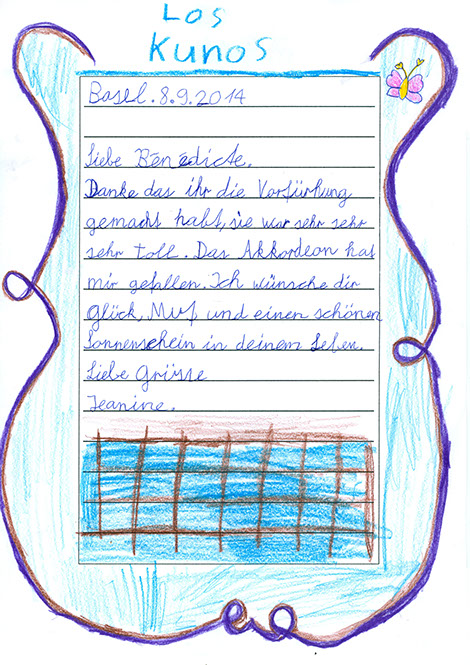 Los
Kunos
Basel. 8.9.2014
Liebe Bénédicte.
Danke das ihr die Vorfürhung
gemacht habt, sie war sehr sehr
sehr toll. Das Akkordeon hat
mir gefallen. Ich wünsche dir
Glück, Muf und einen schönen
Sonnenschein in deinem Leben.
Liebe Grüsse
Jeanine.